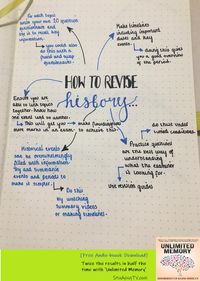 For each topic
write your own 20 question
questionnaire and
try it to recall key
information.
↳ you could also
do this with a
friend and swap
questionnaires!
Make timelines
including important
dates and key
events.
↳ doing this gives
you a good overview
of the period.
HOW TO REVISE
history...
Ensure you are
able to link topics
together - know how
one event led to another.
↳ this will get you
more marks in an exam
→ make flow diagrams
to achieve this
Historical events
can be overwhelmingly
filled with information!
Try and summarise
events and periods to
make it simpler.
↳ Do this
by watching
summary videos
or making timelines.
Practice questions
are the best way of
understanding
what the examiner
is looking for.
→ do these under
timed conditions.
Use revision guides
[Free Audio-book Download]
Twice the results in half the
time with 'Unlimited Memory'
UNLIMITED
MEMORY